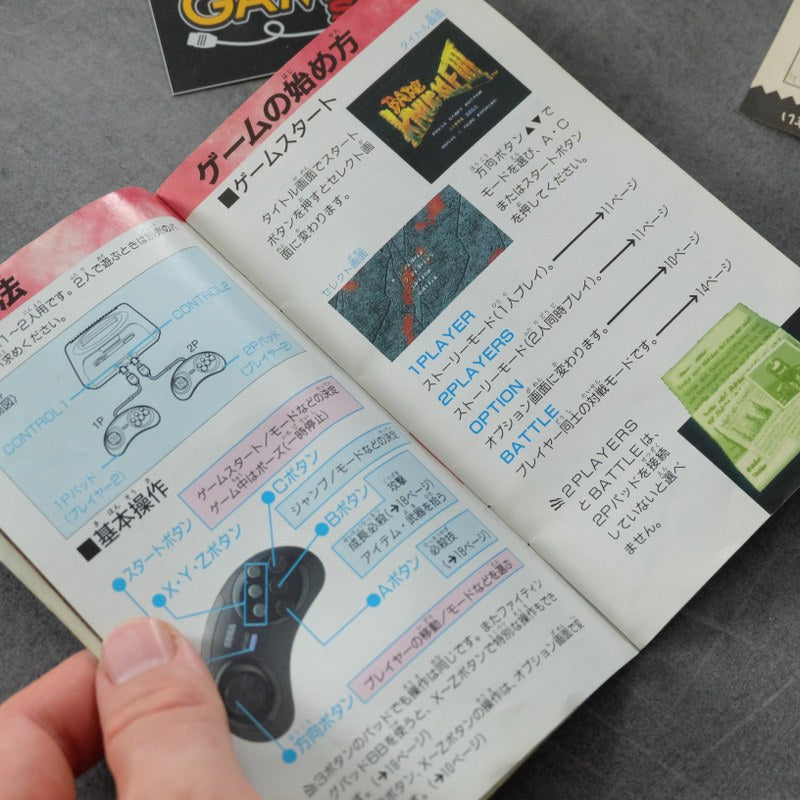 GAM
法
1～2人用です。2人で遊ぶときは別売の
求めください。
CONTROL2
CONTROL1
1P
2P
2Pパッド
(プレイヤー2)
1Pパッド
(プレイヤー2)
■基本操作
ゲームスタート/モードなどの決定
ゲーム中はポーズ(一時停止)
スタートボタン
X・Y・Zボタン
Cボタン
ジャンプ/モードなどの決定
Bボタン
攻撃
成長必殺(→18ページ)
アイテム・武器を拾う
Aボタン
必殺技
(→18ページ)
SEGA
方向ボタン
プレイヤーの移動/モードなどを選ぶ
3ボタンのパッドでも操作は同じです。またファイティン
グパッド6Bを使うと、X～Zボタンで特別な操作もでき
(→19ページ)
ボタン、X～Zボタンの操作は、オプション画面で変
(→10ページ)
ゲームの始め方
■ゲームスタート
タイトル画面
BARE
KNUCKLE III
タイトル画面でスタート
ボタンを押すとセレクト画
面に変わります。
セレクト画面
方向ボタン▲▼で
モードを選び、A・C
またはスタートボタン
を押してください。
1PLAYER
ストーリーモード(1人プレイ)。→11ページ
2PLAYERS
ストーリーモード(2人同時プレイ)。→11ページ
OPTION
オプション画面に変わります。→10ページ
BATTLE
プレイヤー同士の対戦モードです。→14ページ
2PLAYERS
とBATTLEは、
2Pパッドを接続
していないと選べ
ません。